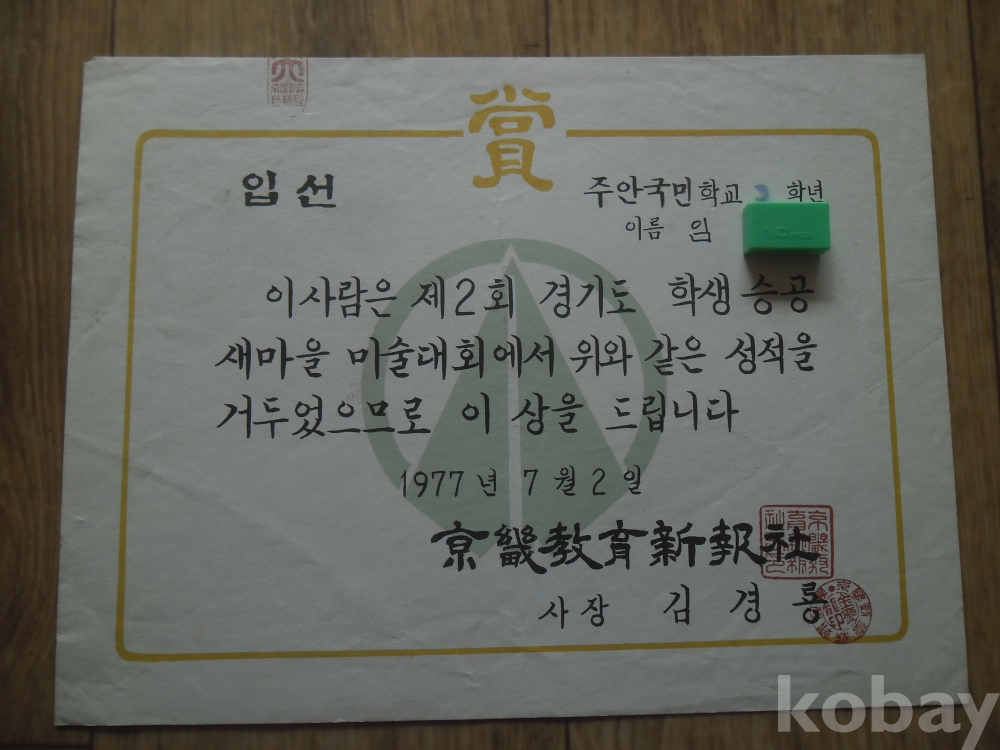 賞
입선
주안국민학교 3 학년
이름 임
이사람은 제2회 경기도 학생 승공
새마을 미술대회에서 위와 같은 성적을
거두었으므로 이 상을 드립니다
1977년 7월 2일
京畿教育新報社
사장 김경룡
kobay